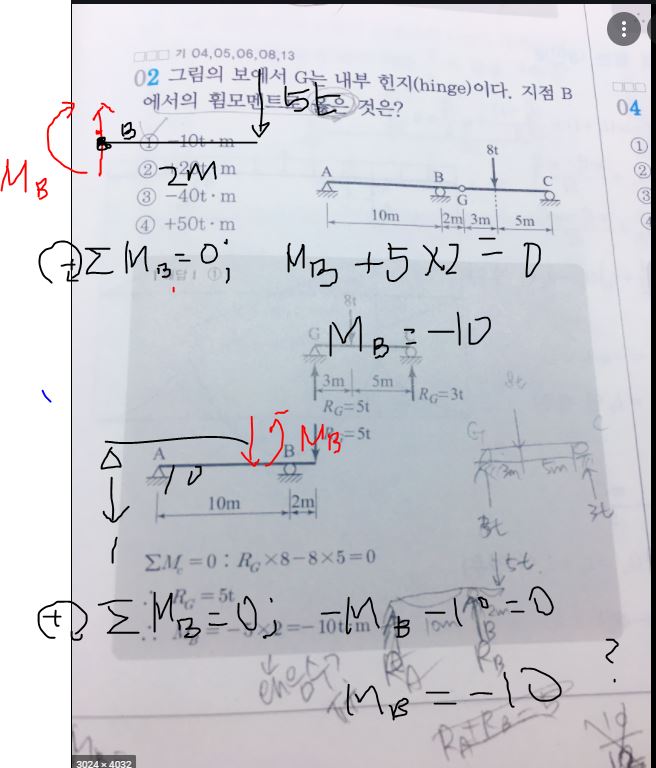 기 04,05,06,08,13
02 그림의 보에서 G는 내부 힌지(hinge)이다. 지점 B
에서의 휨모멘트로 옳은 것은?
5t
B
2M
M_B
① -10t·m
② -20t·m
③ -40t·m
④ +50t·m
8t
A B G C
10m 2m 3m 5m
04
①
②
③
④
⊕ ΣM_B=0; M_B+5×2=0
M_B=-10
①
8t
G
3m 5m
R_G=5t R_G=3t
R_G=5t
M_B
A B
10
10m 2m
1
8t
G C
3m 5m
3t 3t
ΣM_c=0 : R_G×8-8×5=0
∴ R_G=5t
∴ M_B=-5×2=-10t·m
5t
10m 2m
R_A R_B
⊕ ΣM_B=0; -M_B-10=0
M_B=-10 ?
R_A+R_B=
3024 × 4032